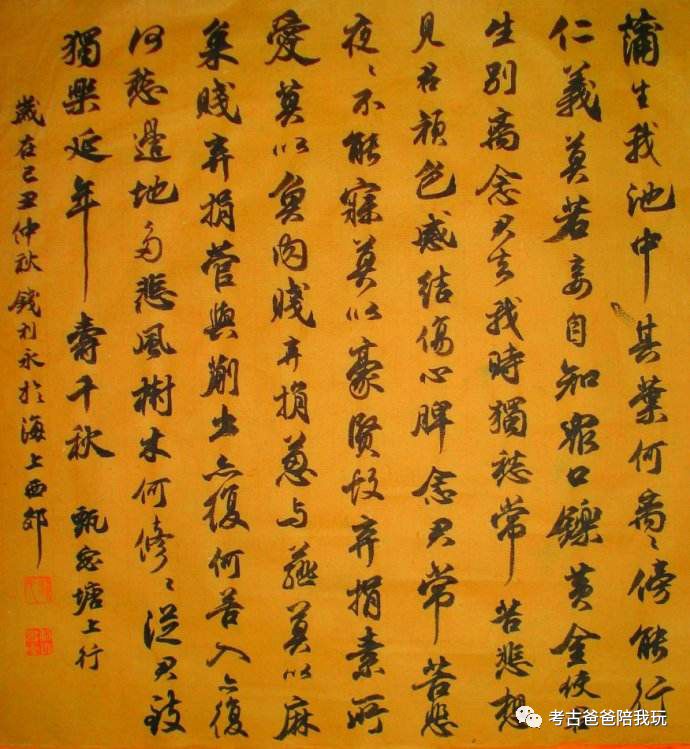 蒲生我池中其葉何离〻傍能行
仁義莫若妾自知眾口鑠黃金使君
生別离念君去我時獨愁常苦悲想
見君顏色感結傷心脾念君常苦悲
夜〻不能寐莫以豪賢故弃捐素所
愛莫以魚肉賤弃捐葱与薤莫以麻
枲賤弃捐菅與蒯出亦復何苦入亦復
何愁邊地多悲風樹木何修〻從君致
獨樂延年壽千秋 甄宓塘上行
歲在己丑仲秋錢利永於海上西郊
考古爸爸陪我玩